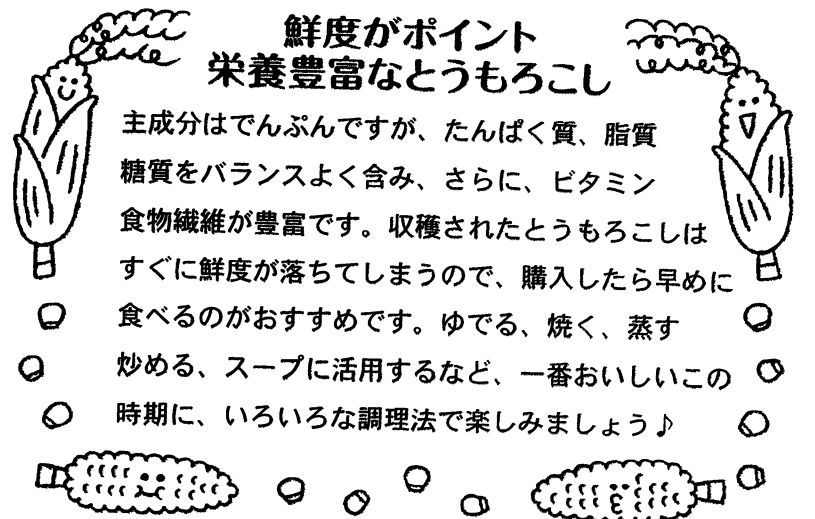 鮮度がポイント
栄養豊富なとうもろこし
主成分はでんぷんですが、たんぱく質、脂質
糖質をバランスよく含み、さらに、ビタミン
食物繊維が豊富です。収穫されたとうもろこしは
すぐに鮮度が落ちてしまうので、購入したら早めに
食べるのがおすすめです。ゆでる、焼く、蒸す
炒める、スープに活用するなど、一番おいしいこの
時期に、いろいろな調理法で楽しみましょう♪